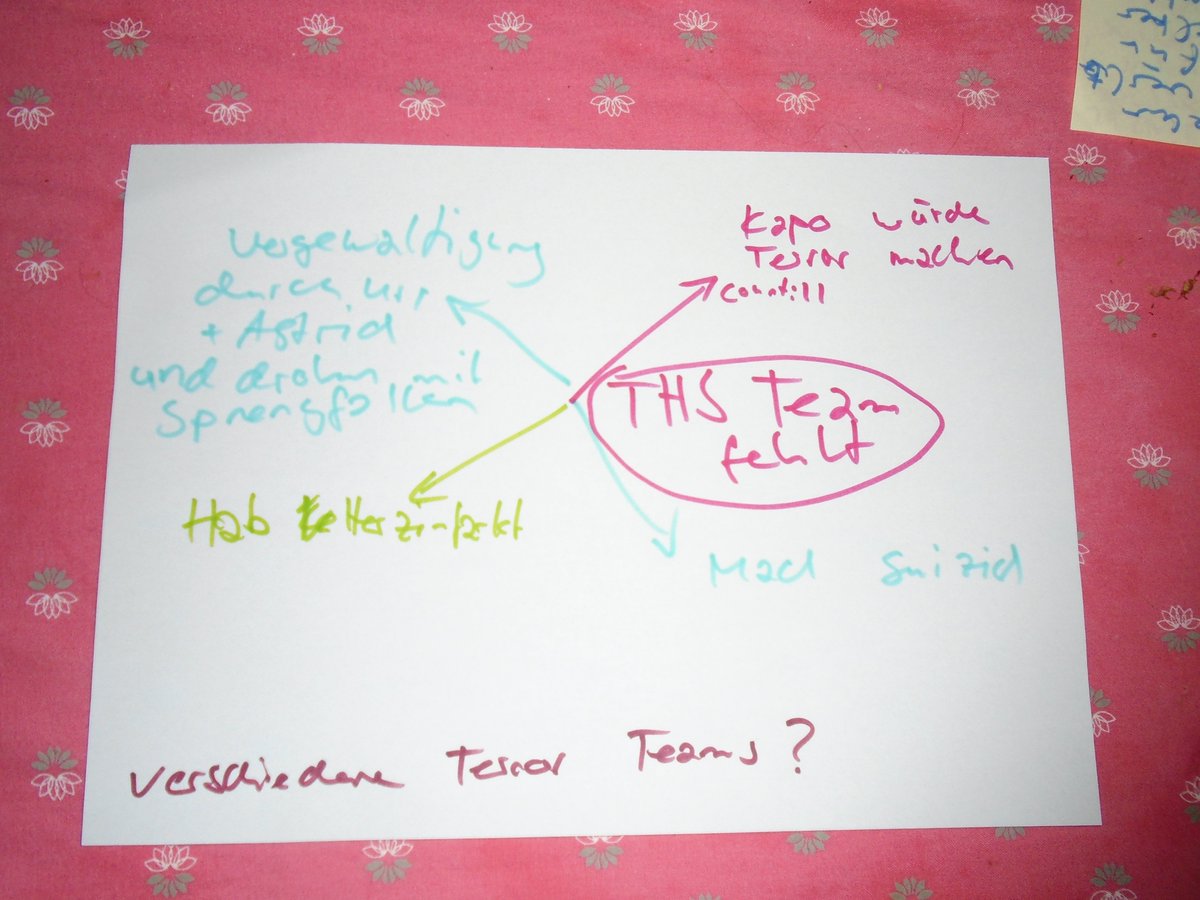 Vergewaltigung
durch
+ Astrid
und drohen mit
Sprengfallen
Kapo würde
Terror machen
THS Team
fehlt
Hab Herzinfarkt
Mach Suizid
Verschiedene Terror Teams?